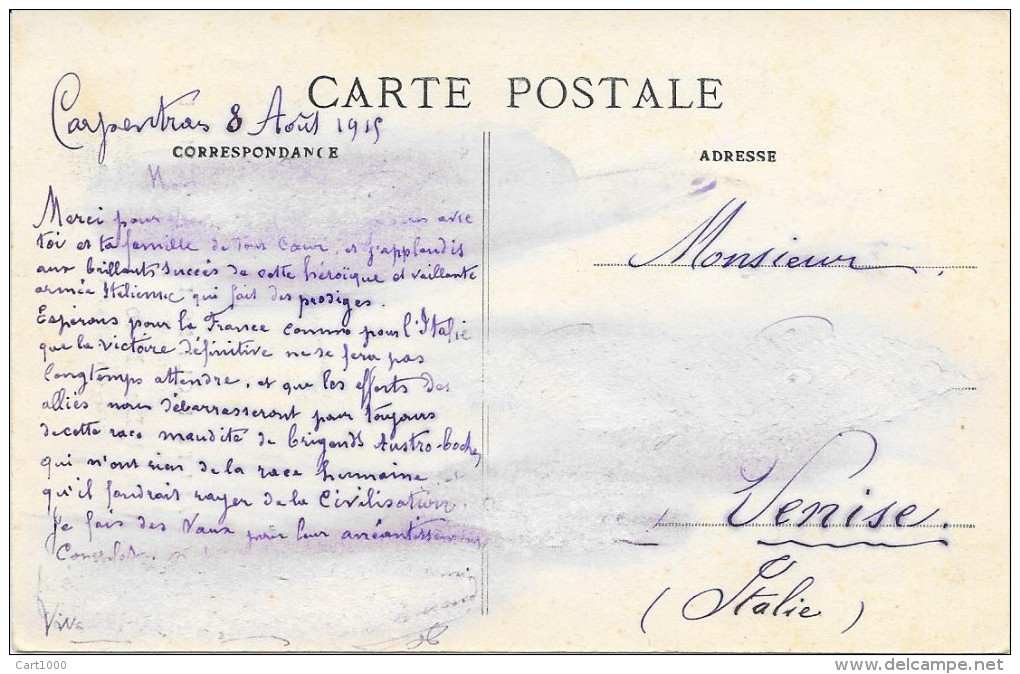 CARTE POSTALE
Carpentras 8 Août 1915
CORRESPONDANCE
ADRESSE
Merci pour avec
toi et ta famille de tout Cœur, et j'applaudis
aux brillants succés de cette héroïque et vaillante
armée Italienne qui fait des prodiges.
Espérons pour la France comme pour l'Italie
que la victoire définitive ne se fera pas
longtemps attendre, et que les efforts des
alliés nous débarrasseront pour toujours
de cette race maudite de brigands Austro-boches
qui n'ont rien de la race humaine
qu'il faudrait rayer de la Civilisation.
Je fais des Vœux pour leur anéantissement
Viva
Monsieur
Venise.
(Italie)
Cart1000
www.delcampe.net